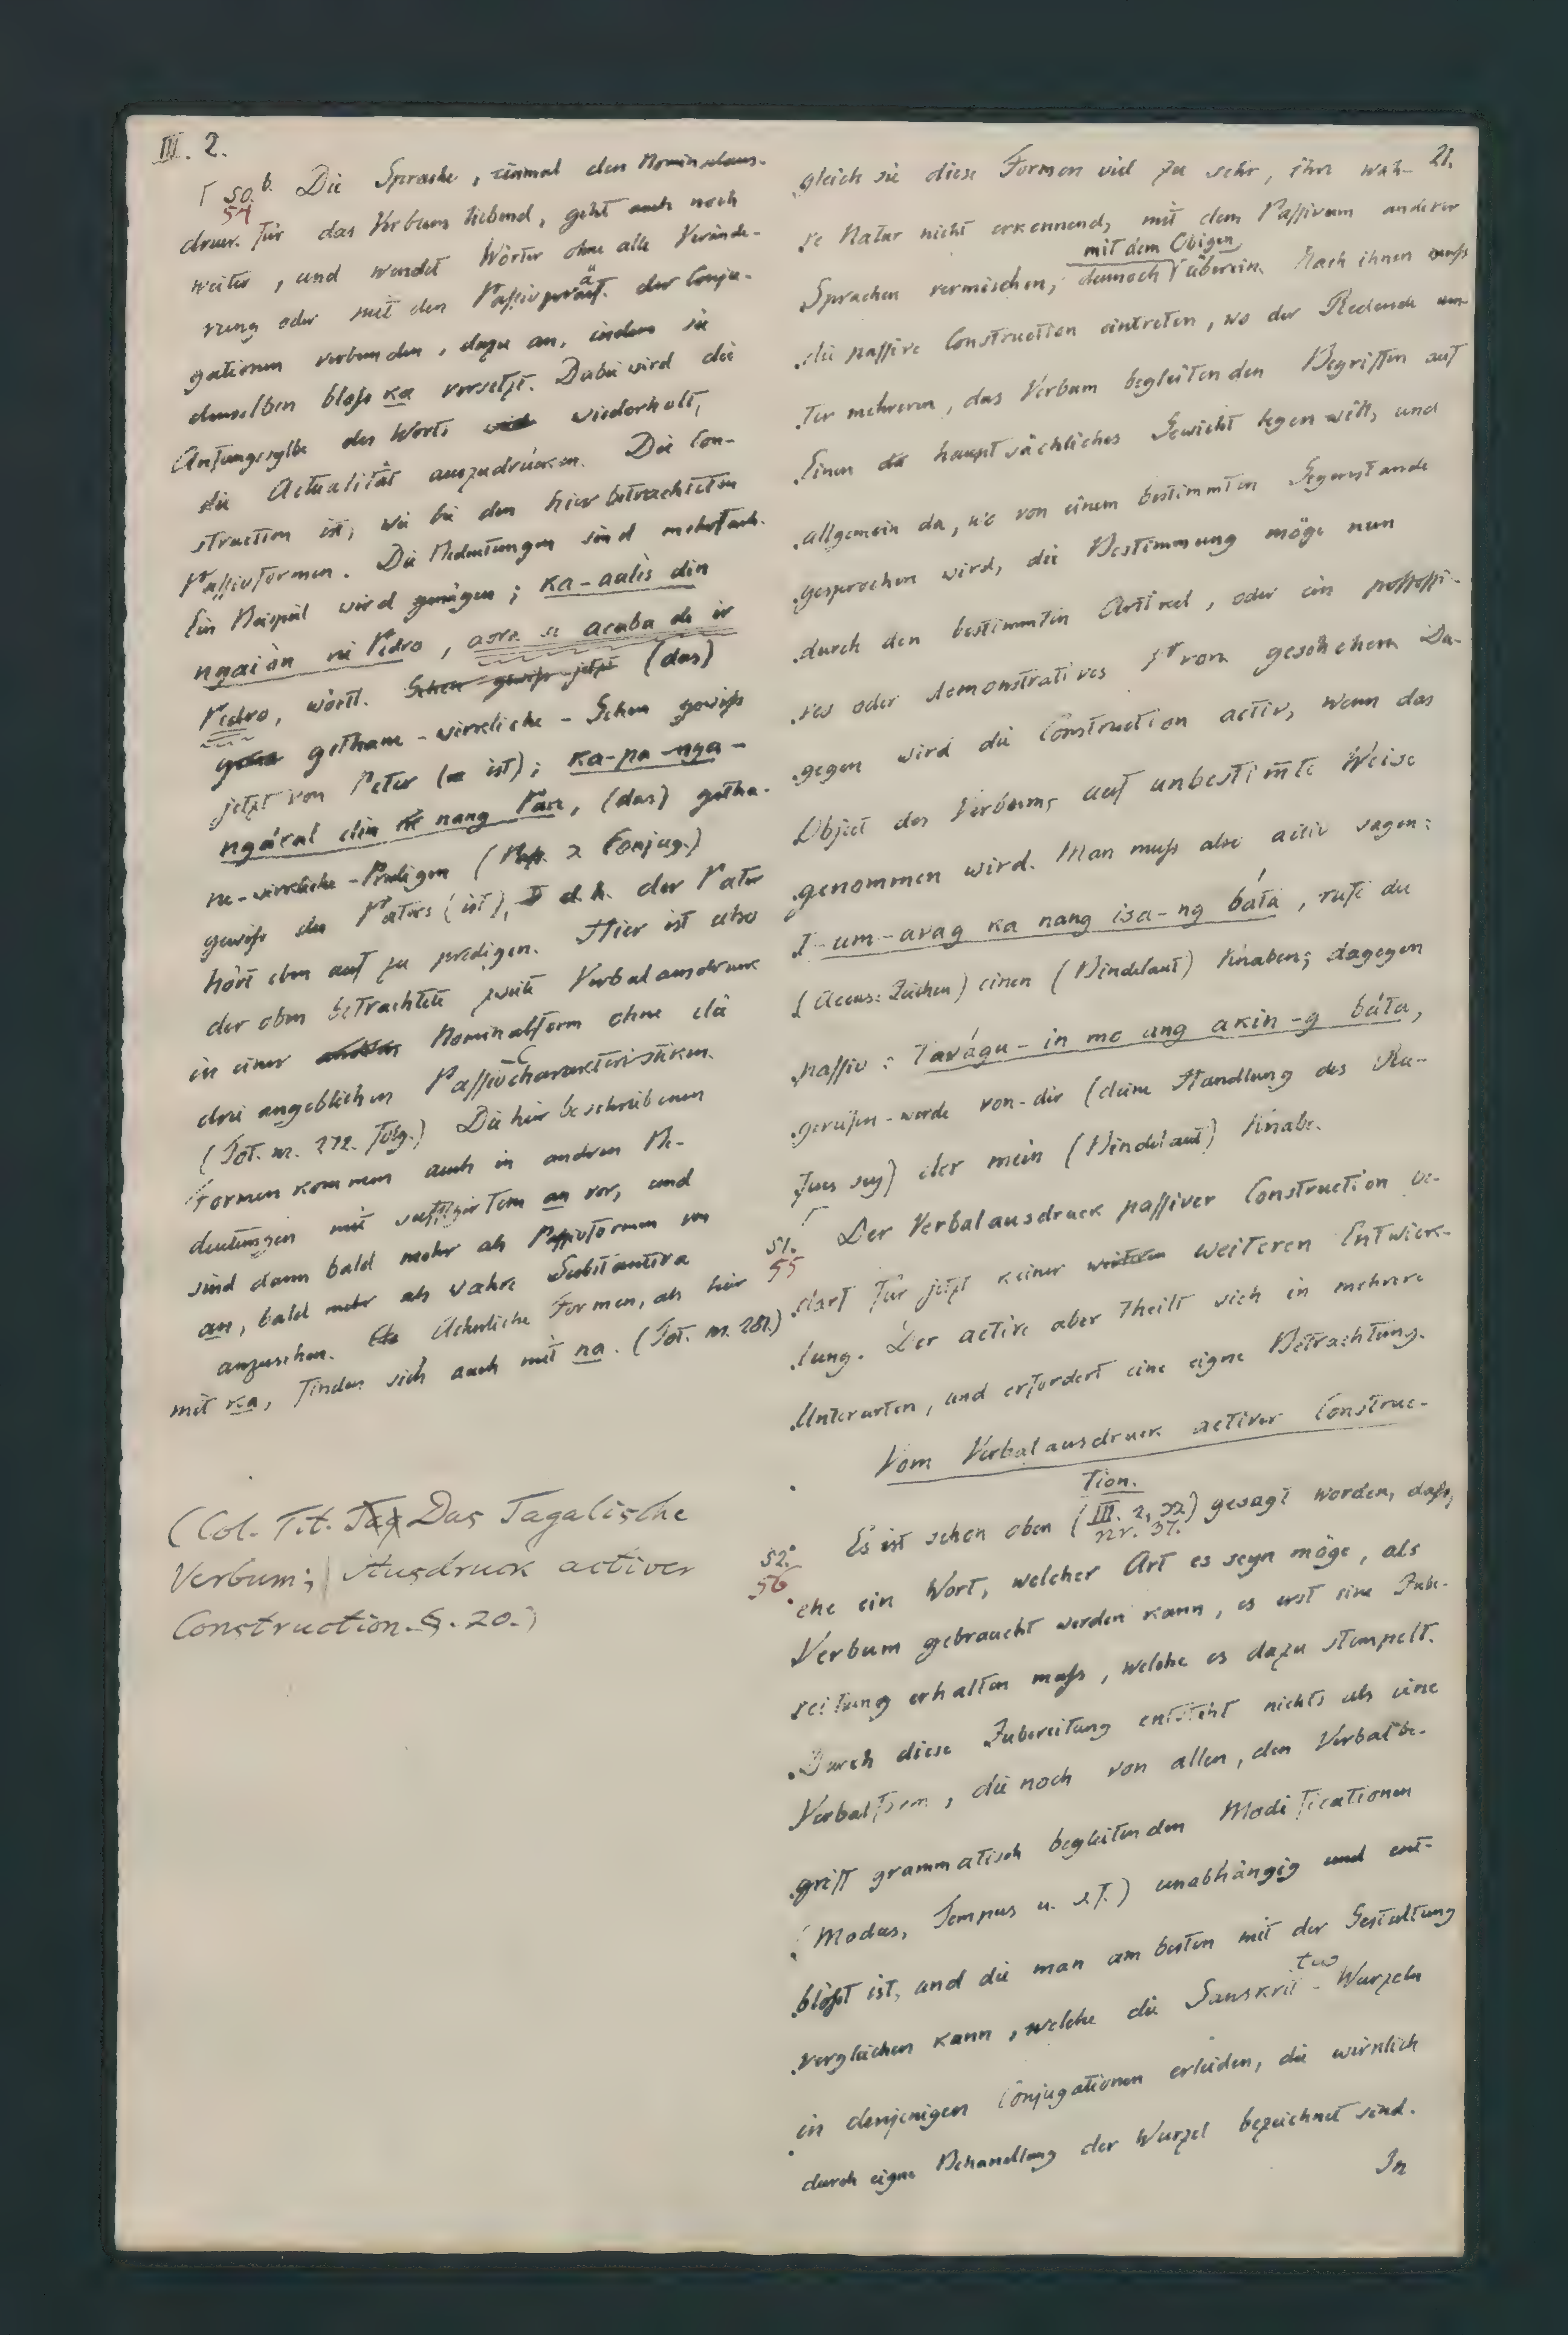 III. 2.
50.b. Die Sprache, einmal den Nominalaus-
54
druck für das Verbum liebend, geht auch noch
weiter, und wendet Wörter ohne alle Verände-
rung oder mit den Passivpraef. der Conju-
gationen verbunden, dazu an, indem sie
denselben bloß ka vorsetzt. Dabei wird die
Anfangssylbe des Worts wiederholt,
die Actualität auszudrücken. Die Con-
struction ist, wie bei den hier betrachteten
Passivformen. Die Bedeutungen sind mehrfach.
Ein Beispiel wird genügen; ka-aalis din
ngaiòn ni Pedro, aora se acaba de ir
Pedro, wörtl. Schon gewiß jetzt (das)
gethane-wirkliche-Gehen gewiß
jetzt von Peter (ist); ka-pa-nga-
ngáral din nang Pare, (das) getha-
ne-wirkliche-Predigen (2 Conjug.)
gewiß des Paters (ist), d. h. der Pater
hört eben auf zu predigen. Hier ist also
der oben betrachtete zweite Verbalausdruck
in einer Nominalform ohne die
drei angeblichen Passivcharakteristiken.
(Tot. nr. 272. folg.) Die hier beschriebenen
Formen kommen auch in andren Be-
deutungen mit suffigirtem an vor, und
sind dann bald mehr als Passivformen von
an, bald mehr als wahre Substantiva
anzusehen. Aehnliche Formen, als hier
mit ka, finden sich auch mit na. (Tot. nr. 281.)
(Col. Tit. Tag Das Tagalische
Verbum; Ausdruck activer
Construction. §. 20.)
21.
gleich sie diese Formen viel zu sehr, ihre wah-
re Natur nicht erkennend, mit dem Passivum anderer
mit dem Obigen
Sprachen vermischen, dennoch überein. Nach ihnen muß
die passive Construction eintreten, wo der Redende un-
ter mehreren, das Verbum begleitenden Begriffen auf
Einen hauptsächliches Gewicht legen will, und
allgemein da, wo von einem bestimmten Gegenstande
gesprochen wird, die Bestimmung möge nun
durch den bestimmten Artikel, oder ein possessi-
ves oder demonstratives Pron. geschehen. Da-
gegen wird die Construction activ, wenn das
Object des Verbums auf unbestim̅te Weise
genommen wird. Man muß also activ sagen:
T-um-avag ka nang isa-ng báta, rufe du
(Accus: Zeichen) einen (Bindelaut) Knaben; dagegen
passiv: Tavágu-in mo ang akin-g báta,
gerufen-werde von-dir (deine Handlung des Ru-
fens sey) der mein (Bindelaut) Knabe.
51.
55
Der Verbalausdruck passiver Construction be-
darf für jetzt keiner weiteren weiteren Entwick-
lung. Der active aber theilt sich in mehrere
Unterarten, und erfordert eine eigne Betrachtung.
Vom Verbalausdruck activer Construc-
tion.
52.
56
Es ist schon oben (III. 2, 32) gesagt worden, daß,
nr. 37.
ehe ein Wort, welcher Art es seyn möge, als
Verbum gebraucht werden kann, es erst eine Zube-
reitung erhalten muß, welche es dazu stempelt.
Durch diese Zubereitung entsteht nichts als eine
Verbalform, die noch von allen, den Verbalbe-
griff grammatisch begleitenden Modificationen
(Modus, Tempus u. s. f.) unabhängig und ent-
blößt ist, und die man am besten mit der Gestaltung
vergleichen kann, welche die Sanskrit-Wurzeln
in denjenigen Conjugationen erleiden, die wirklich
durch eigne Behandlung der Wurzel bezeichnet sind.
In